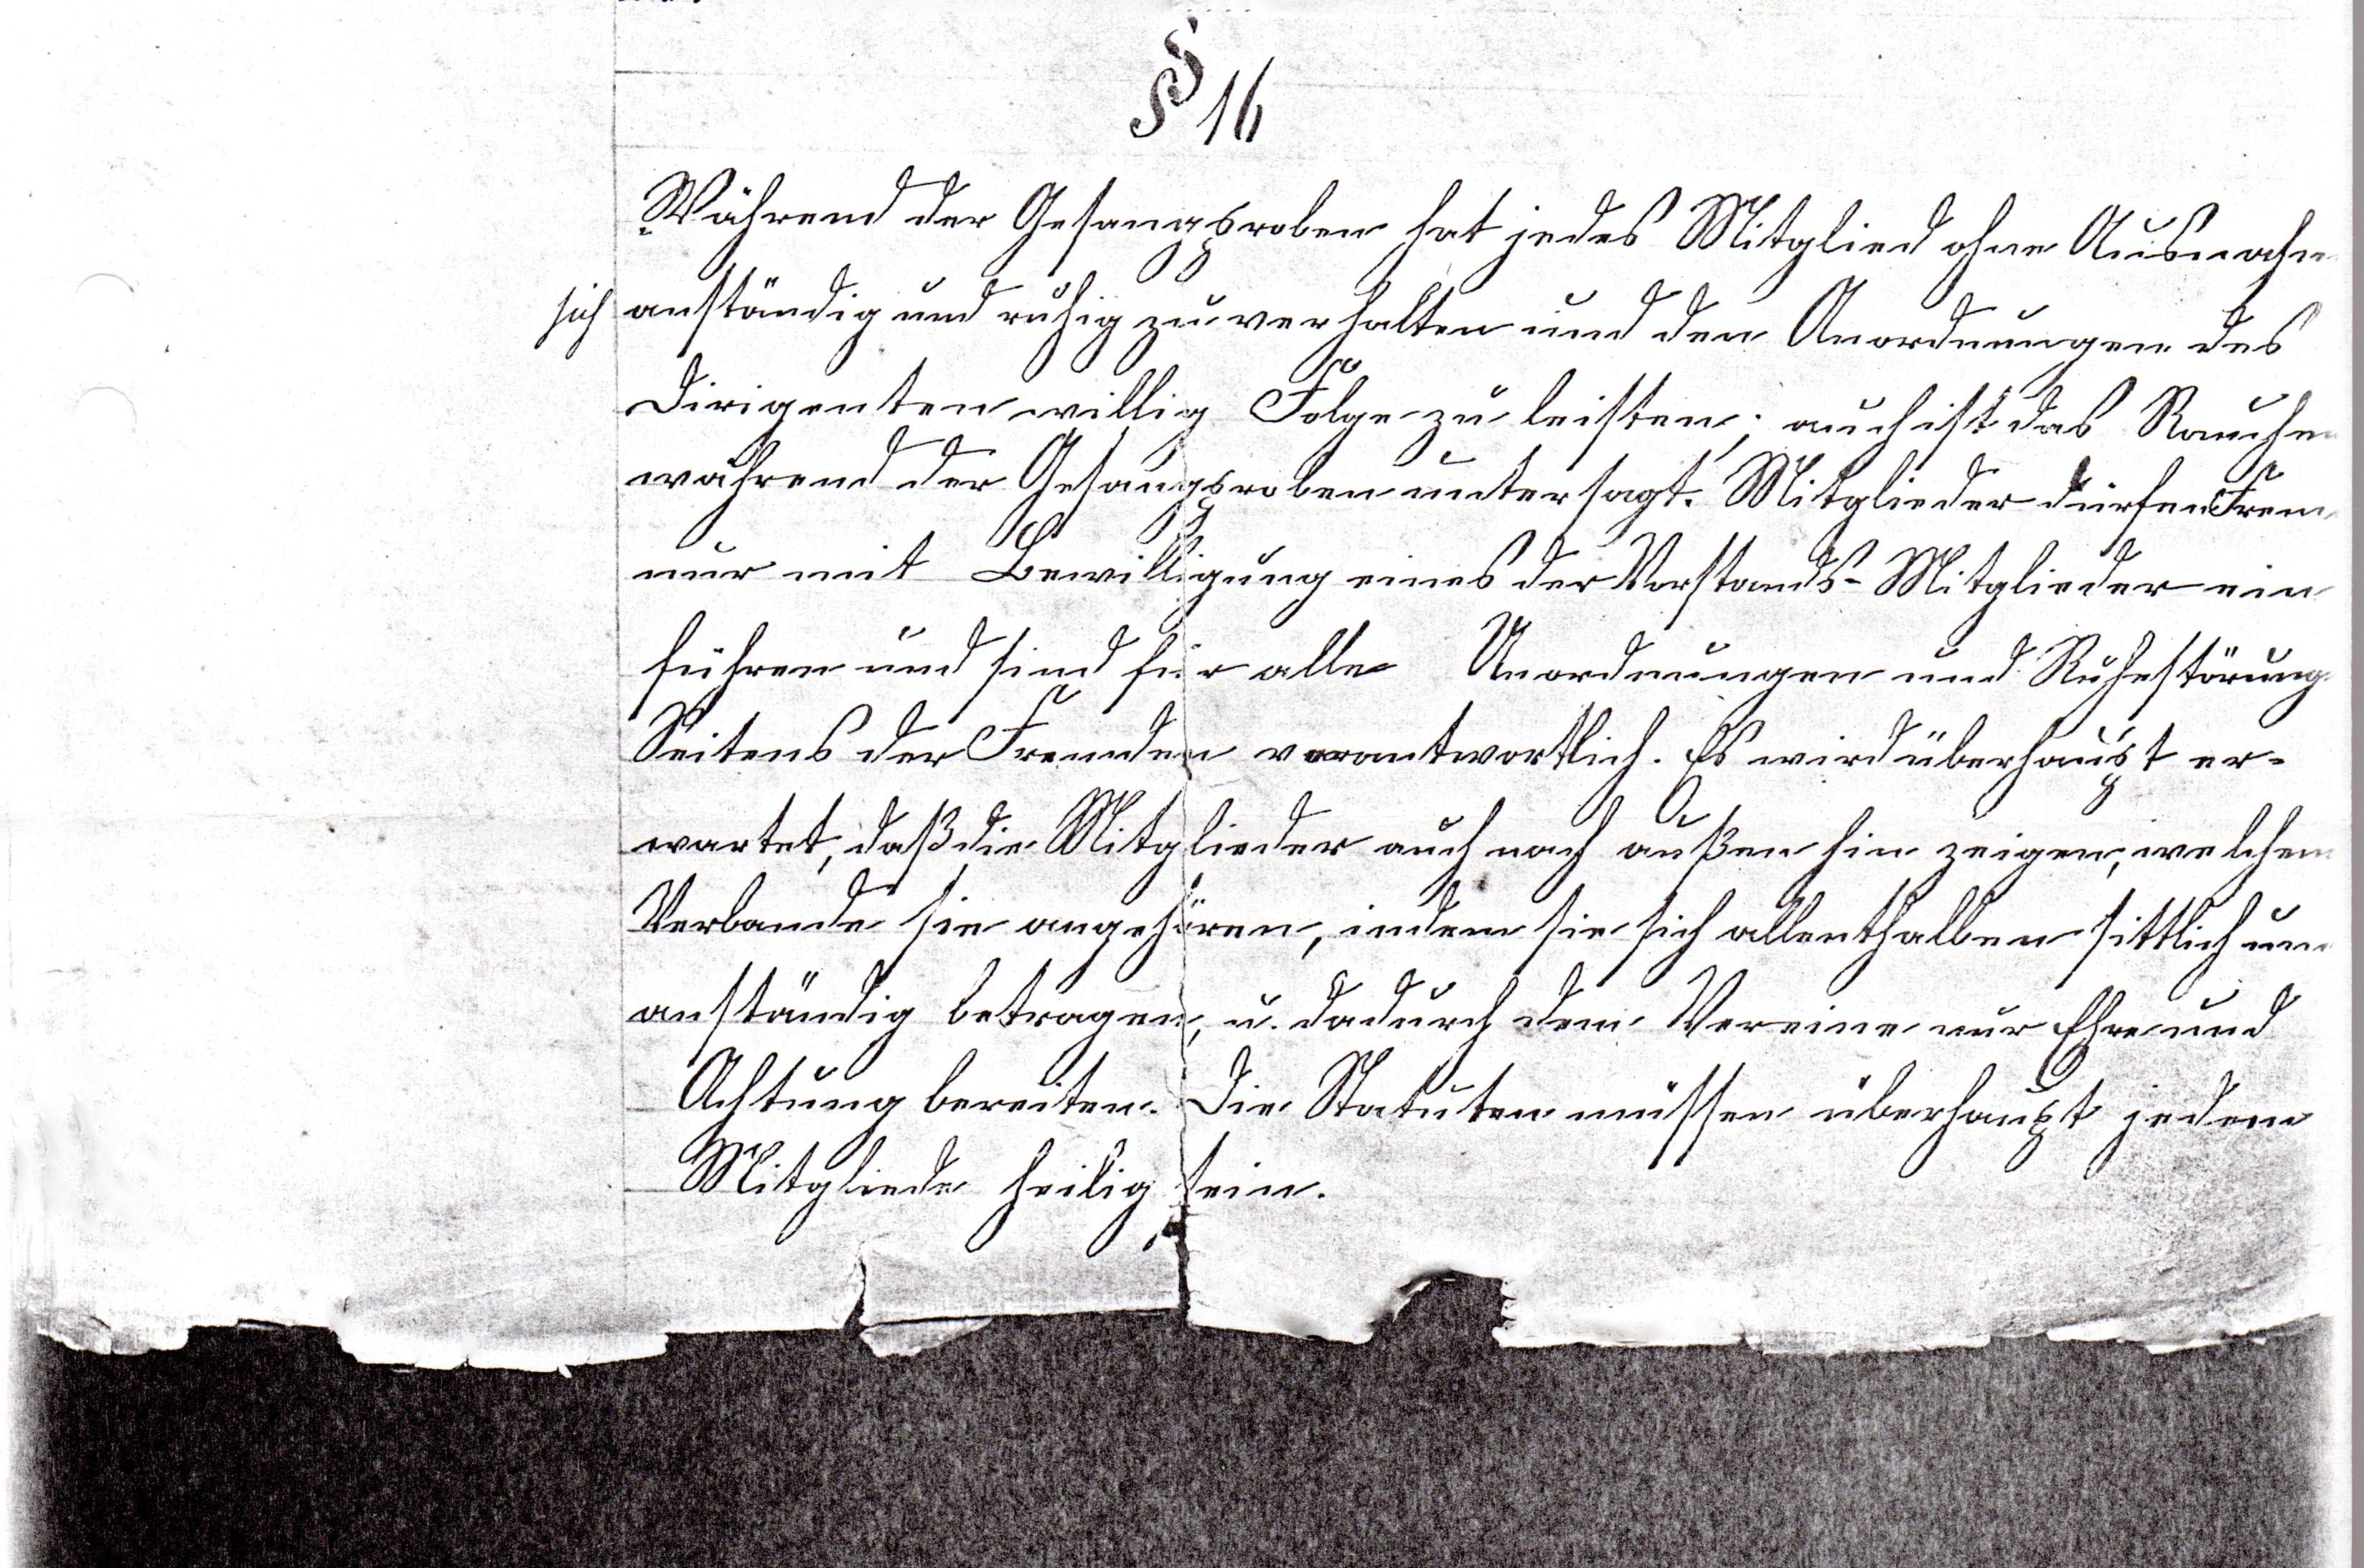 § 16
Während der Gesangproben hat jedes Mitglied ohne Ausnahm
sich anständig und ruhig zu verhalten und den Anordnungen des
Dirigenten willig Folge zu leisten; auch ist das Rauchen
während der Gesangproben untersagt. Mitglieder dürfen Frem
nur mit Bewilligung eines der Vorstands-Mitglieder ein
führen und sind für alle Unordnungen und Ruhestörung
Seitens der Fremden verantwortlich. Es wird überhaupt er-
wartet, daß die Mitglieder auch nach außen hin zeigen, welchem
Verbande sie angehören, indem sie sich allenthalben sittlich un
anständig betragen, u. dadurch dem Vereine nur Ehre und
Achtung bereiten. Die Statuten müssen überhaupt jedem
Mitgliede heilig sein.